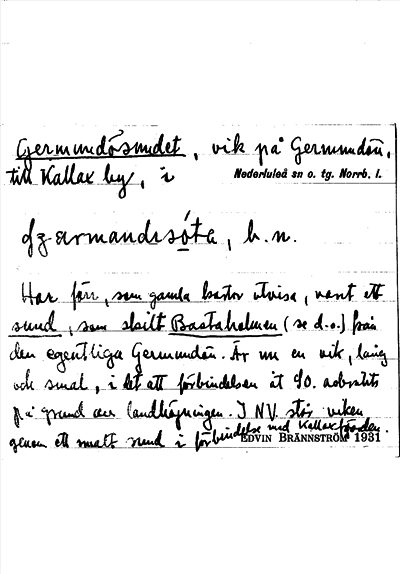 Germundösundet, vik på Germundön,
till Kallax by, i Nederluleå sn o. tg. Norrb. l.
, b. n.
Har förr, som gamla kartor utvisa, varit ett
sund, som skilt Bastaholmen (se d. o.) från
den egentliga Germundön. Är nu en vik, lång
och smal, i det att förbindelsen åt SO. avbrutits
på grund av landhöjningen. I NV. står viken
genom ett smalt sund i förbindelse med Kallaxfjärden.
EDVIN BRÄNNSTRÖM 1931